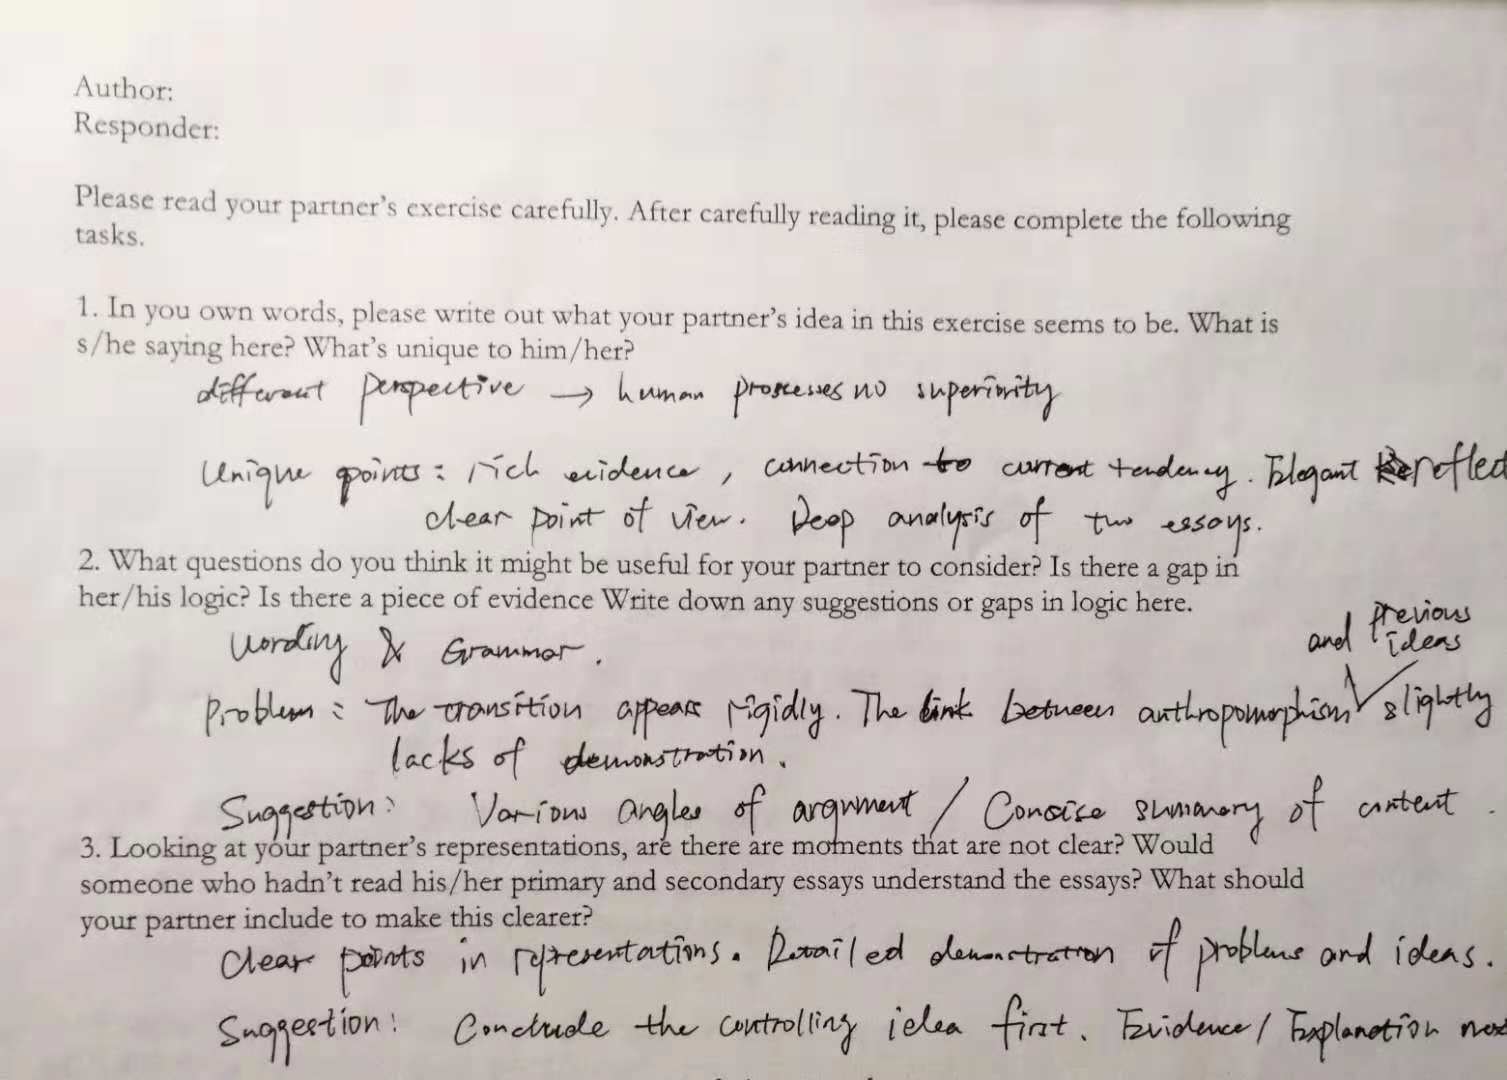 Author:
Responder:
Please read your partner's exercise carefully. After carefully reading it, please complete the following
tasks.
1. In you own words, please write out what your partner's idea in this exercise seems to be. What is
s/he saying here? What's unique to him/her?
different perspective → human prossesses no superiority
Unique points: rich evidence, connection to current tendency. Elegant reflect
clear point of view. Deep analysis of two essays.
2. What questions do you think it might be useful for your partner to consider? Is there a gap in
her/his logic? Is there a piece of evidence Write down any suggestions or gaps in logic here.
Wording & Grammar.
and previous
ideas
Problem: The transition appears rigidly. The link between anthropomorphism slightly
lacks of demonstration.
Suggestion: Various angles of argument / Concise summary of content.
3. Looking at your partner's representations, are there are moments that are not clear? Would
someone who hadn't read his/her primary and secondary essays understand the essays? What should
your partner include to make this clearer?
Clear points in representations. Detailed demonstration of problems and ideas.
Suggestion: Conclude the controlling idea first. Evidence / Explanation